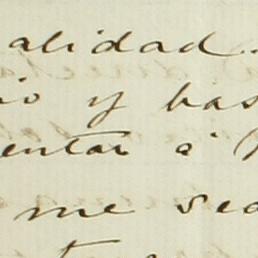 alidad.
io y has
entar á
me sea